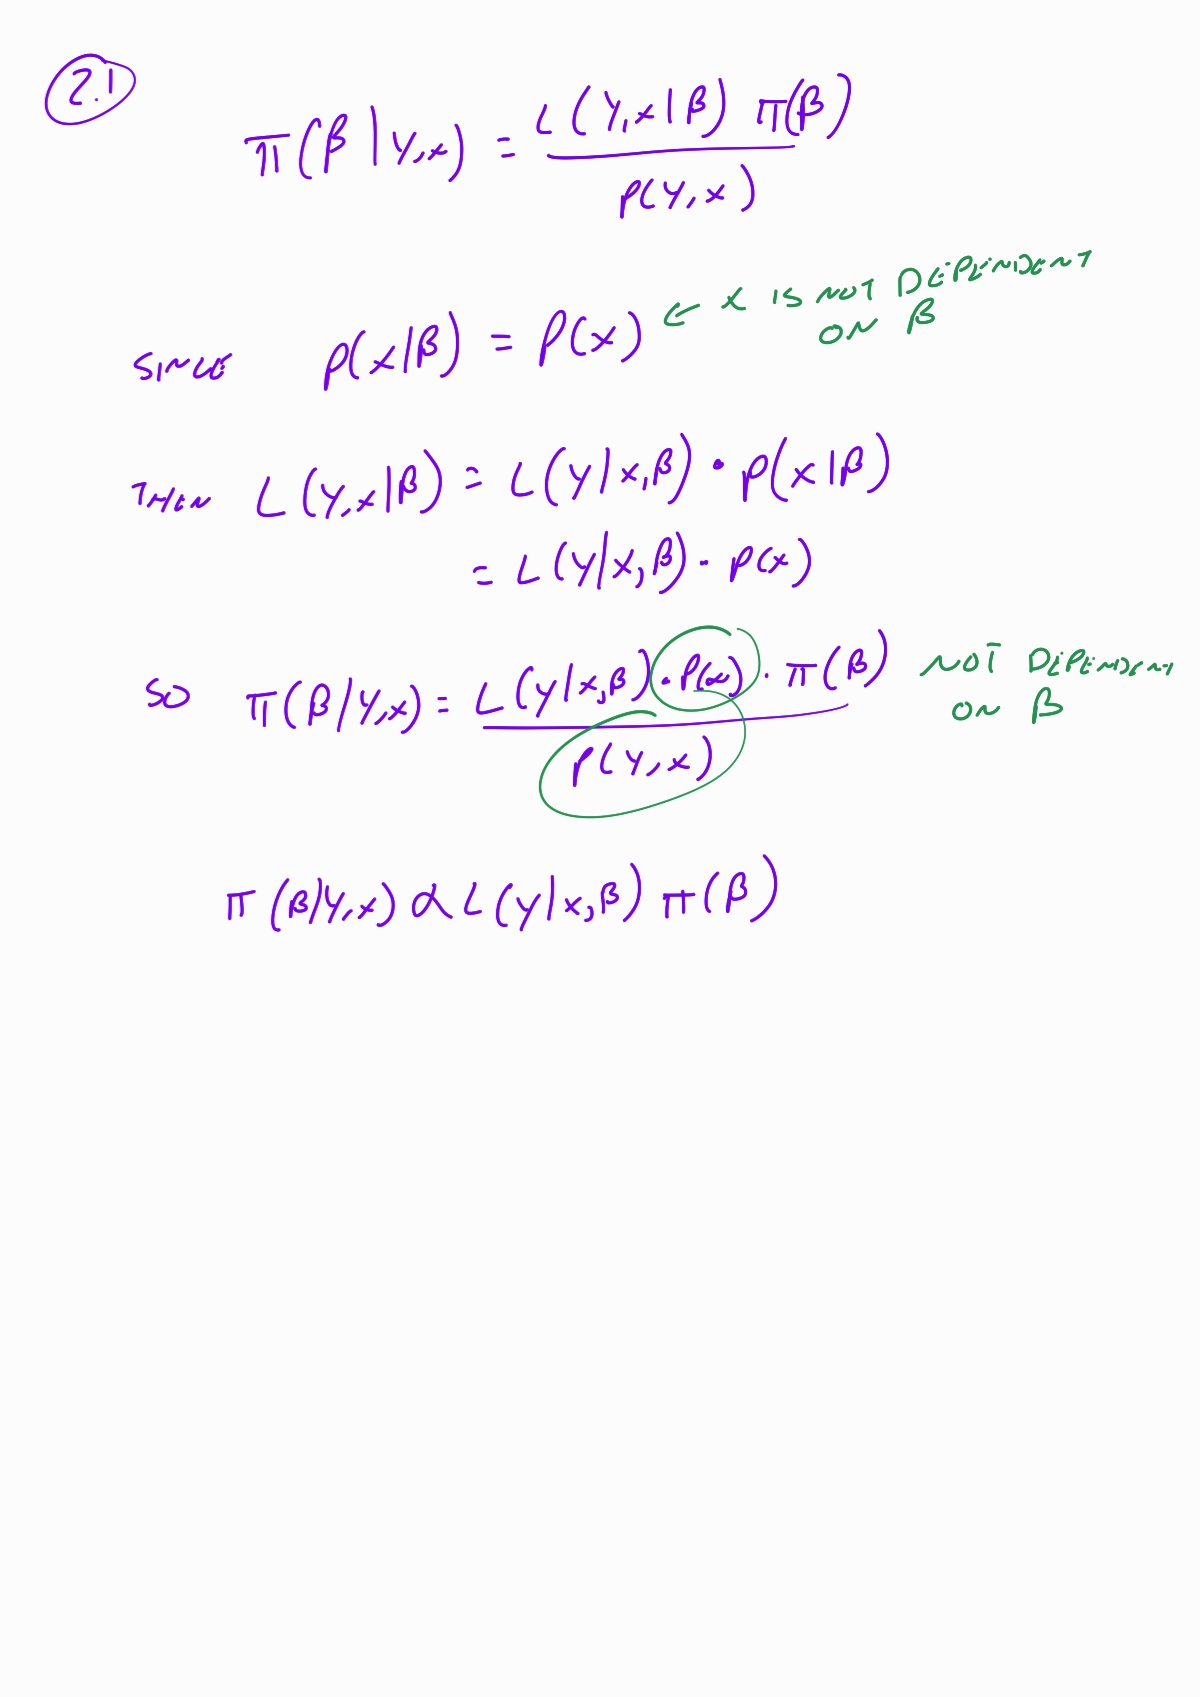 2.1
π(β|Y,x) = L(Y,x|β) π(β)
P(Y,x)
SINCE P(x|β) = P(x) ← x IS NOT DEPENDENT
ON β
THEN L(Y,x|β) = L(Y|x,β) · P(x|β)
= L(Y|x,β) · P(x)
SO π(β|Y,x) = L(Y|x,β) · P(x) · π(β) NOT DEPENDENT
P(Y,x) ON β
π(β|Y,x) ∝ L(Y|x,β) π(β)